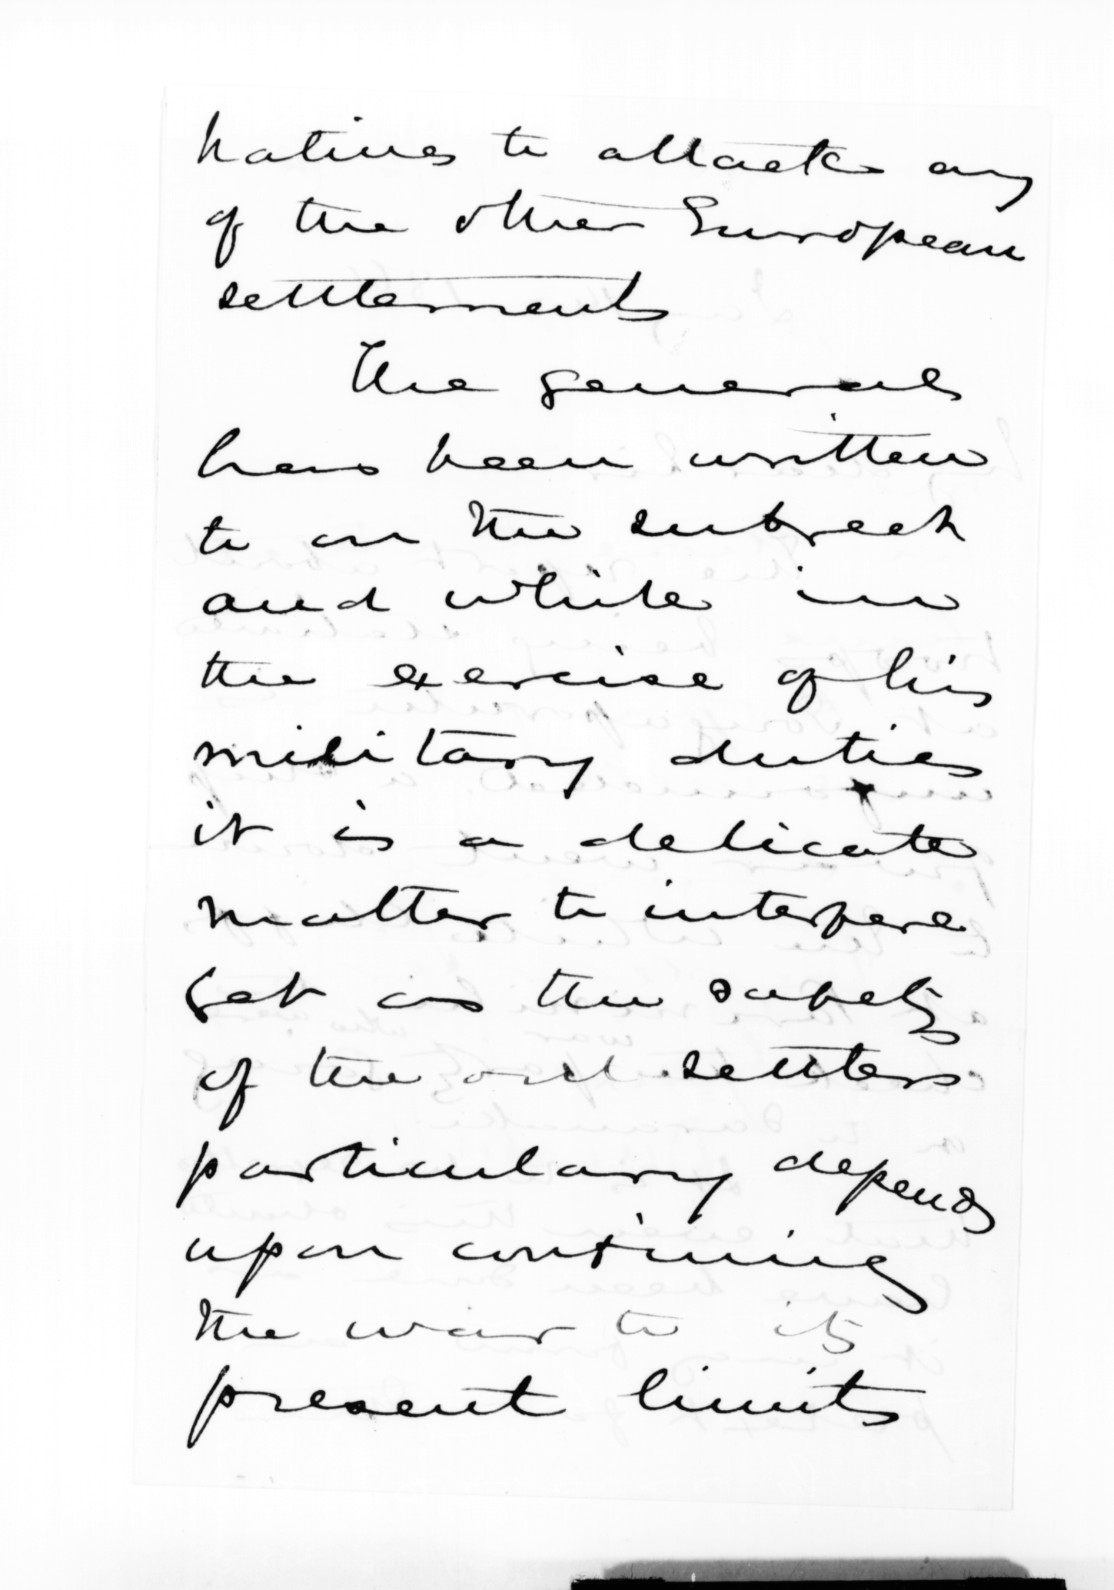 natives to attack any
of the other European
settlements
The general
has been written
to on the subject
and while in
the exercise of his
military duties
it is a delicate
matter to interfere
yet as the safety
of the out settlers
particularly depends
upon confining
the war to its
present limits